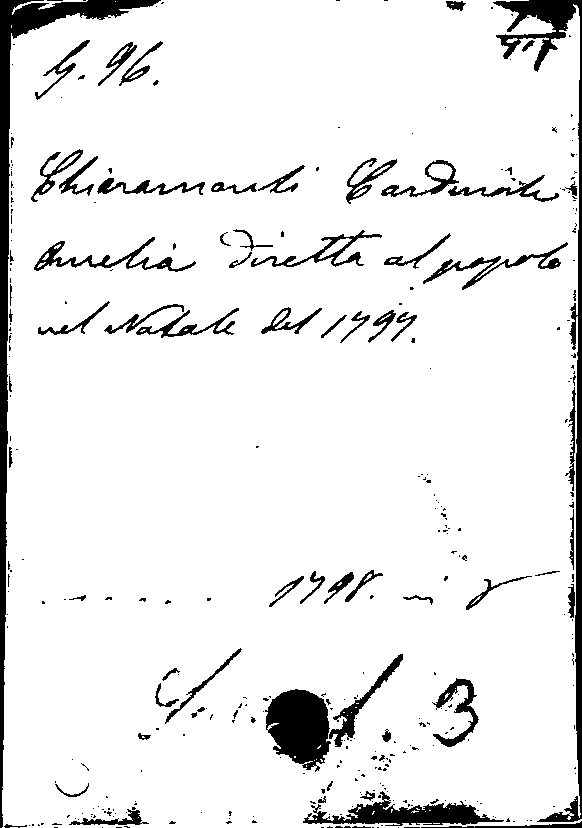 G. 96.
Chiaramonti Cardinale
Omelia diretta al popolo
nel Natale del 1797.
. . . . . . 1798. in 8
3